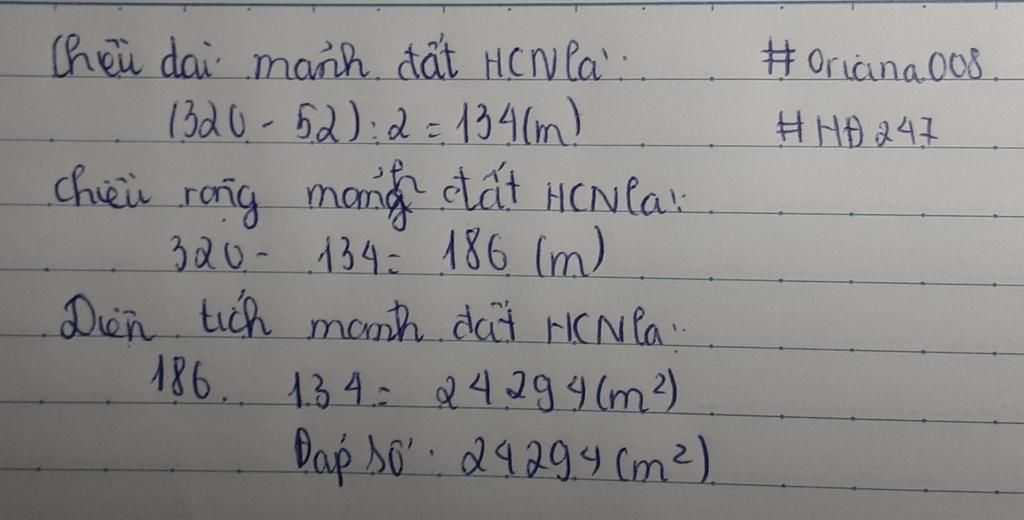 Chiều dài mảnh đất HCN là: #Oriana008
(320 - 52) : 2 = 134 (m) #HĐ247
Chiều rộng mảnh đất HCN là:
320 - 134 = 186 (m)
Diện tích mảnh đất HCN là:
186. 134 = 24 294 (m²)
Đáp số: 24294 (m²)